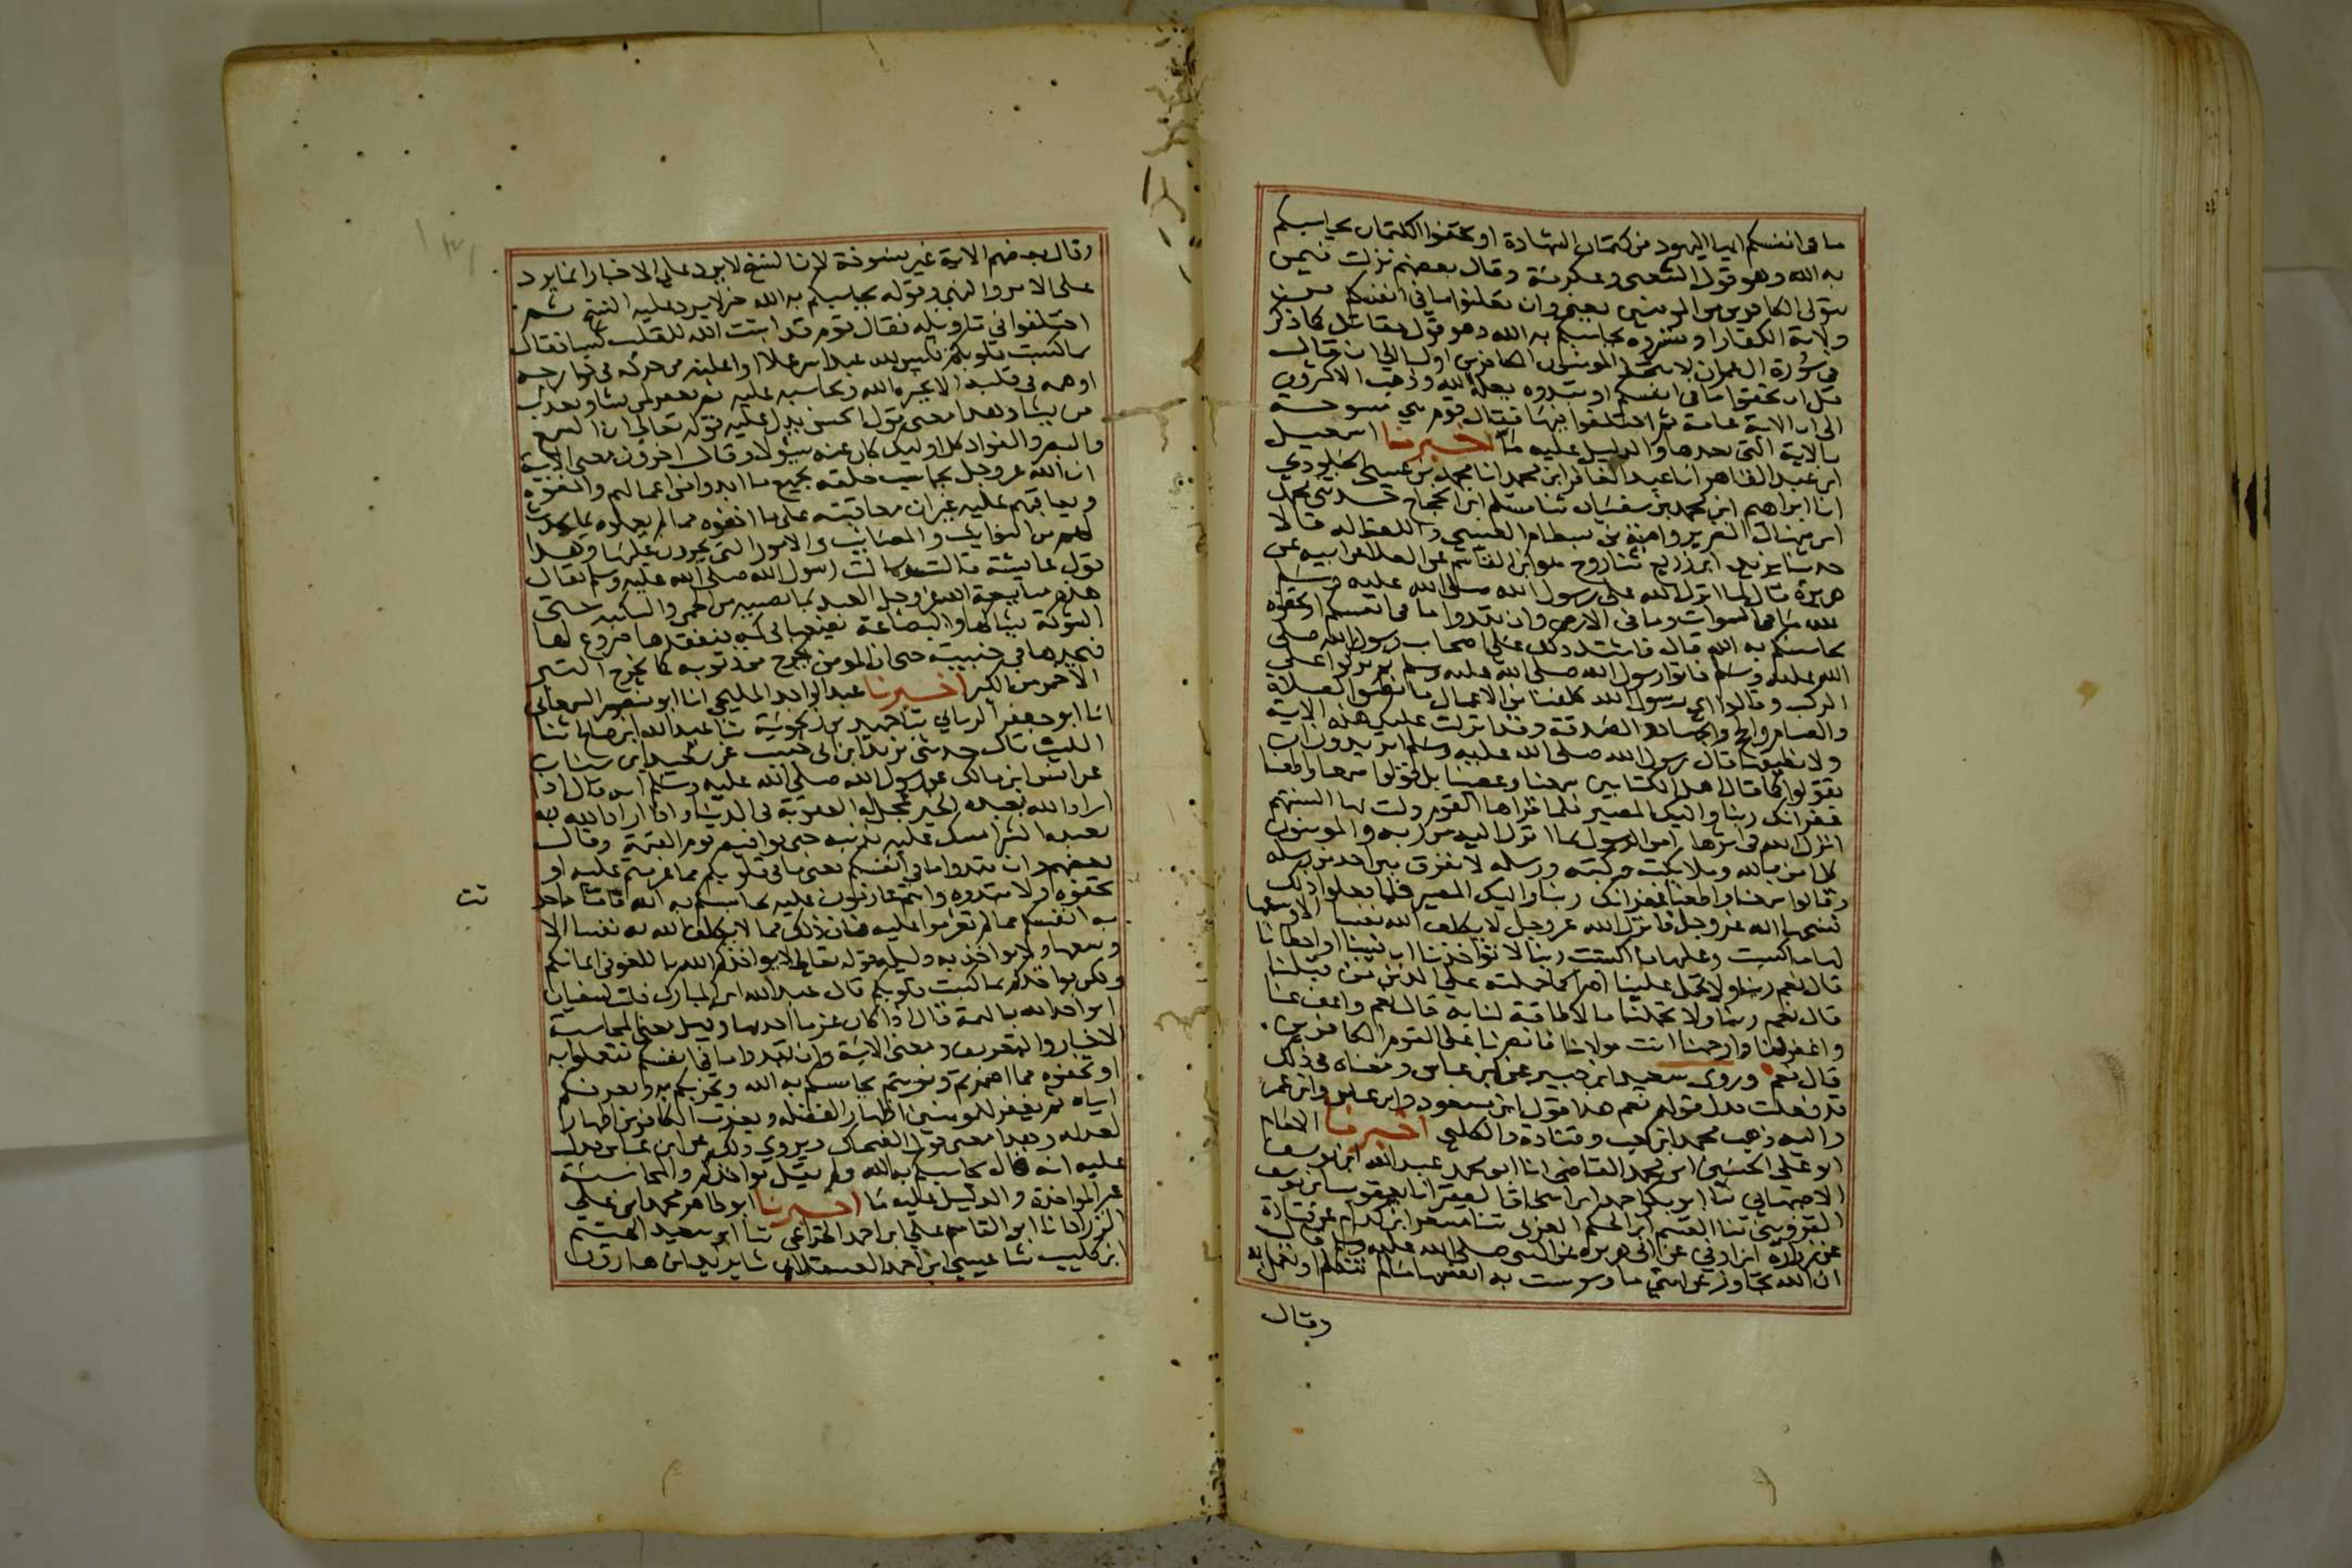 ما فى انفسكم ايها اليهود من كتمان الشهادة او تخفوا الكتمان يحاسبكم
به الله وهو قول الشعبى وعكرمة وقال بعضهم نزلت فيمن
يتولى الكافرين من المومنين يعنى وان تعلنوا ما فى انفسكم من
ولاية الكفار او تسروه يحاسبكم به الله وهو قول مقاتل كما ذكر
فى سورة ال عمران لا يتخذ المومنون الكافرين اوليا الى ان قال
قل ان تخفوا ما فى انفسكم او تبدوه يعلمه الله وذهب الاكثرون
الى ان الاية عامة ثم اختلفوا فيها فقال قوم هى منسوخة
بالاية التى بعدها والدليل عليه ما اخبرنا اسمعيل
ابن عبد القاهر انا عبد الغافر ابن محمد انا محمد بن عيسى الجلودي
انا ابراهيم ابن محمد بن سفيان ثنا مسلم ابن الحجاج حدثنى محمد
ابن منهال الضرير وامية بن بسطام العيشى واللفظ له قالا
حدثنا يزيد ابن زريع ثنا روح هو ابن القاسم عن العلا عن ابيه عن
هريرة قال لما انزل الله على رسول الله صلى الله عليه وسلم
لله ما فى السموات وما فى الارض وان تبدوا ما فى انفسكم او تخفوه
يحاسبكم به الله قال فاشتد ذلك على اصحاب رسول الله صلى
الله عليه وسلم فاتوا رسول الله صلى الله عليه وسلم ثم بركوا على
الركب وقالوا اى رسول الله كلفنا من الاعمال ما نطيق الصلاة
والصيام والجهاد والصدقة وقد انزلت عليك هذه الاية
ولا نطيقها قال رسول الله صلى الله عليه وسلم اتريدون ان
تقولوا كما قال اهل الكتابين سمعنا وعصينا بل قولوا سمعنا واطعنا
غفرانك ربنا واليك المصير فلما قراها القوم وذلت بها السنتهم
انزل الله فى اثرها امن الرسول بما انزل اليه من ربه والمومنون
كل امن بالله وملايكته وكتبه ورسله لا نفرق بين احد من رسله
وقالوا سمعنا واطعنا غفرانك ربنا واليك المصير فلما فعلوا ذلك
نسخها الله عز وجل فانزل الله عز وجل لا يكلف الله نفسا الا وسعها
لها ما كسبت وعليها ما اكتسبت ربنا لا تواخذنا ان نسينا او اخطانا
قال نعم ربنا ولا تحمل علينا اصرا كما حملته على الذين من قبلنا
قال نعم ربنا ولا تحملنا ما لا طاقة لنا به قال نعم واعف عنا
واغفر لنا وارحمنا انت مولانا فانصرنا على القوم الكافرين
قال نعم وروى سعيد ابن جبير عن ابن عباس ومعناه فى ذلك
قد فعلت بدل قولهم نعم هذا قول ابن مسعود وابن عباس وابن عمر
واليه ذهب محمد ابن كعب وقتادة والكلبى اخبرنا الامام
ابو علي الحسين ابن محمد القاضى انا ابو محمد عبد الله ابن يوسف
الاصبهاني ثنا ابو بكر احمد ابن اسحاق الفقيه انا يعقوب ابن يوسف
القزوينى ثنا القسم ابن الحكم العرنى ثنا مسعر ابن كدام عن قتادة
عن زرارة ابن اوفى عن ابى هريرة عن النبى صلى الله عليه وسلم قال
ان الله تجاوز عن امتي ما وسوست به انفسها ما لم تتكلم او تعمل به
وقال
وقال بعضهم الاية غير منسوخة لان النسخ لا يرد على الاخبار انما يرد
على الامر والنهى وقوله يحاسبكم به الله خبر لا يرد عليه النسخ ثم
اختلفوا فى تاويله فقال قوم قد اثبت الله للقلب كسبا فقال
بما كسبت قلوبكم فليس لله عبد اسر عملا او اعلنه من حركة فى جوارحه
او همه فى قلبه الا يخبره الله ويحاسبه عليه ثم يغفر لمن يشا ويعذب
من يشا وهذا معنى قول الحسن يدل عليه قوله تعالى ان السمع
والبصر والفواد كل اوليك كان عنه مسولا وقال اخرون معنى الاية
ان الله عز وجل يحاسب خلقه بجميع ما ابدوا من اعمالهم واخفوه
ويعاقبهم عليه غير ان معاقبته على ما اخفوه مما لم يعملوه بما يحدث
لهم من النوايب والمصايب والامور التى يحزنون عليها وهذا
قول عايشة قالت سالت رسول الله صلى الله عليه وسلم فقال
هذه متابعة الله عز وجل العبد بما يصيبه من الحمى والنكبة حتى
الشوكة يشاكها والبضاعة يضعها فى كمه فيفقدها فيروع لها
فيجدها فى جنبيه حتى ان المومن يخرج من ذنوبه كما يخرج التبر
الاحمر من الكير اخبرنا عبد الواحد المليحى انا ابو منصور السمعانى
انا ابو جعفر الرياني ثنا حميد بن زنجوية ثنا عبد الله ابن صالح ثنا
الليث قال حدثنى يزيد ابن ابى حبيب عن سعيد ابن سنان
عن انس ابن مالك عن رسول الله صلى الله عليه وسلم انه قال اذا
اراد الله بعبده الخير عجل له العقوبة فى الدنيا واذا اراد الله به
بعبده الشر امسك عليه بذنبه حتى يوافيه يوم القيمة وقال
بعضهم ان تبدوا ما فى انفسكم يعنى ما فى قلوبكم مما عزمتم عليه او
تخفوه ولا تبدوه وانتم عازمون عليه يحاسبكم به الله فاما ما حد
ثت
به انفسكم مما لم تعزموا عليه فان ذلك مما لا يكلف الله به نفسا الا
وسعها ولا يواخذ به دليله قوله تعالى لا يواخذكم الله باللغو فى ايمانكم
ولكن يواخذكم بما كسبت قلوبكم قال عبد الله ابن المبارك قلت لسفيان
ايواخذ الله بالهمة قال اذا كان عزما اخذ بها وقيل معنى المحاسبة
الاخبار والتعريف ومعنى الاية وان تبدوا ما فى انفسكم فتعملوا به
او تخفوه مما اضمرتم ونويتم يحاسبكم به الله ويخبركم به ويعرفكم
اياه ثم يغفر للمومنين اظهارا لفضله ويعذب الكافرين اظهارا
لعدله وهذا معنى قول الضحاك ويروي ذلك عن ابن عباس يدل
عليه انه قال يحاسبكم به الله ولم يقل يواخذكم والمحاسبة
غير المواخذة والدليل عليه ما اخبرنا ابو طاهر محمد ابن علي
الزراد انا ابو القاسم علي ابن احمد الخزاعى ثنا ابو سعيد الهيثم
ابن كليب ثنا عيسى ابن احمد العسقلانى ثنا يزيد ابن هارون